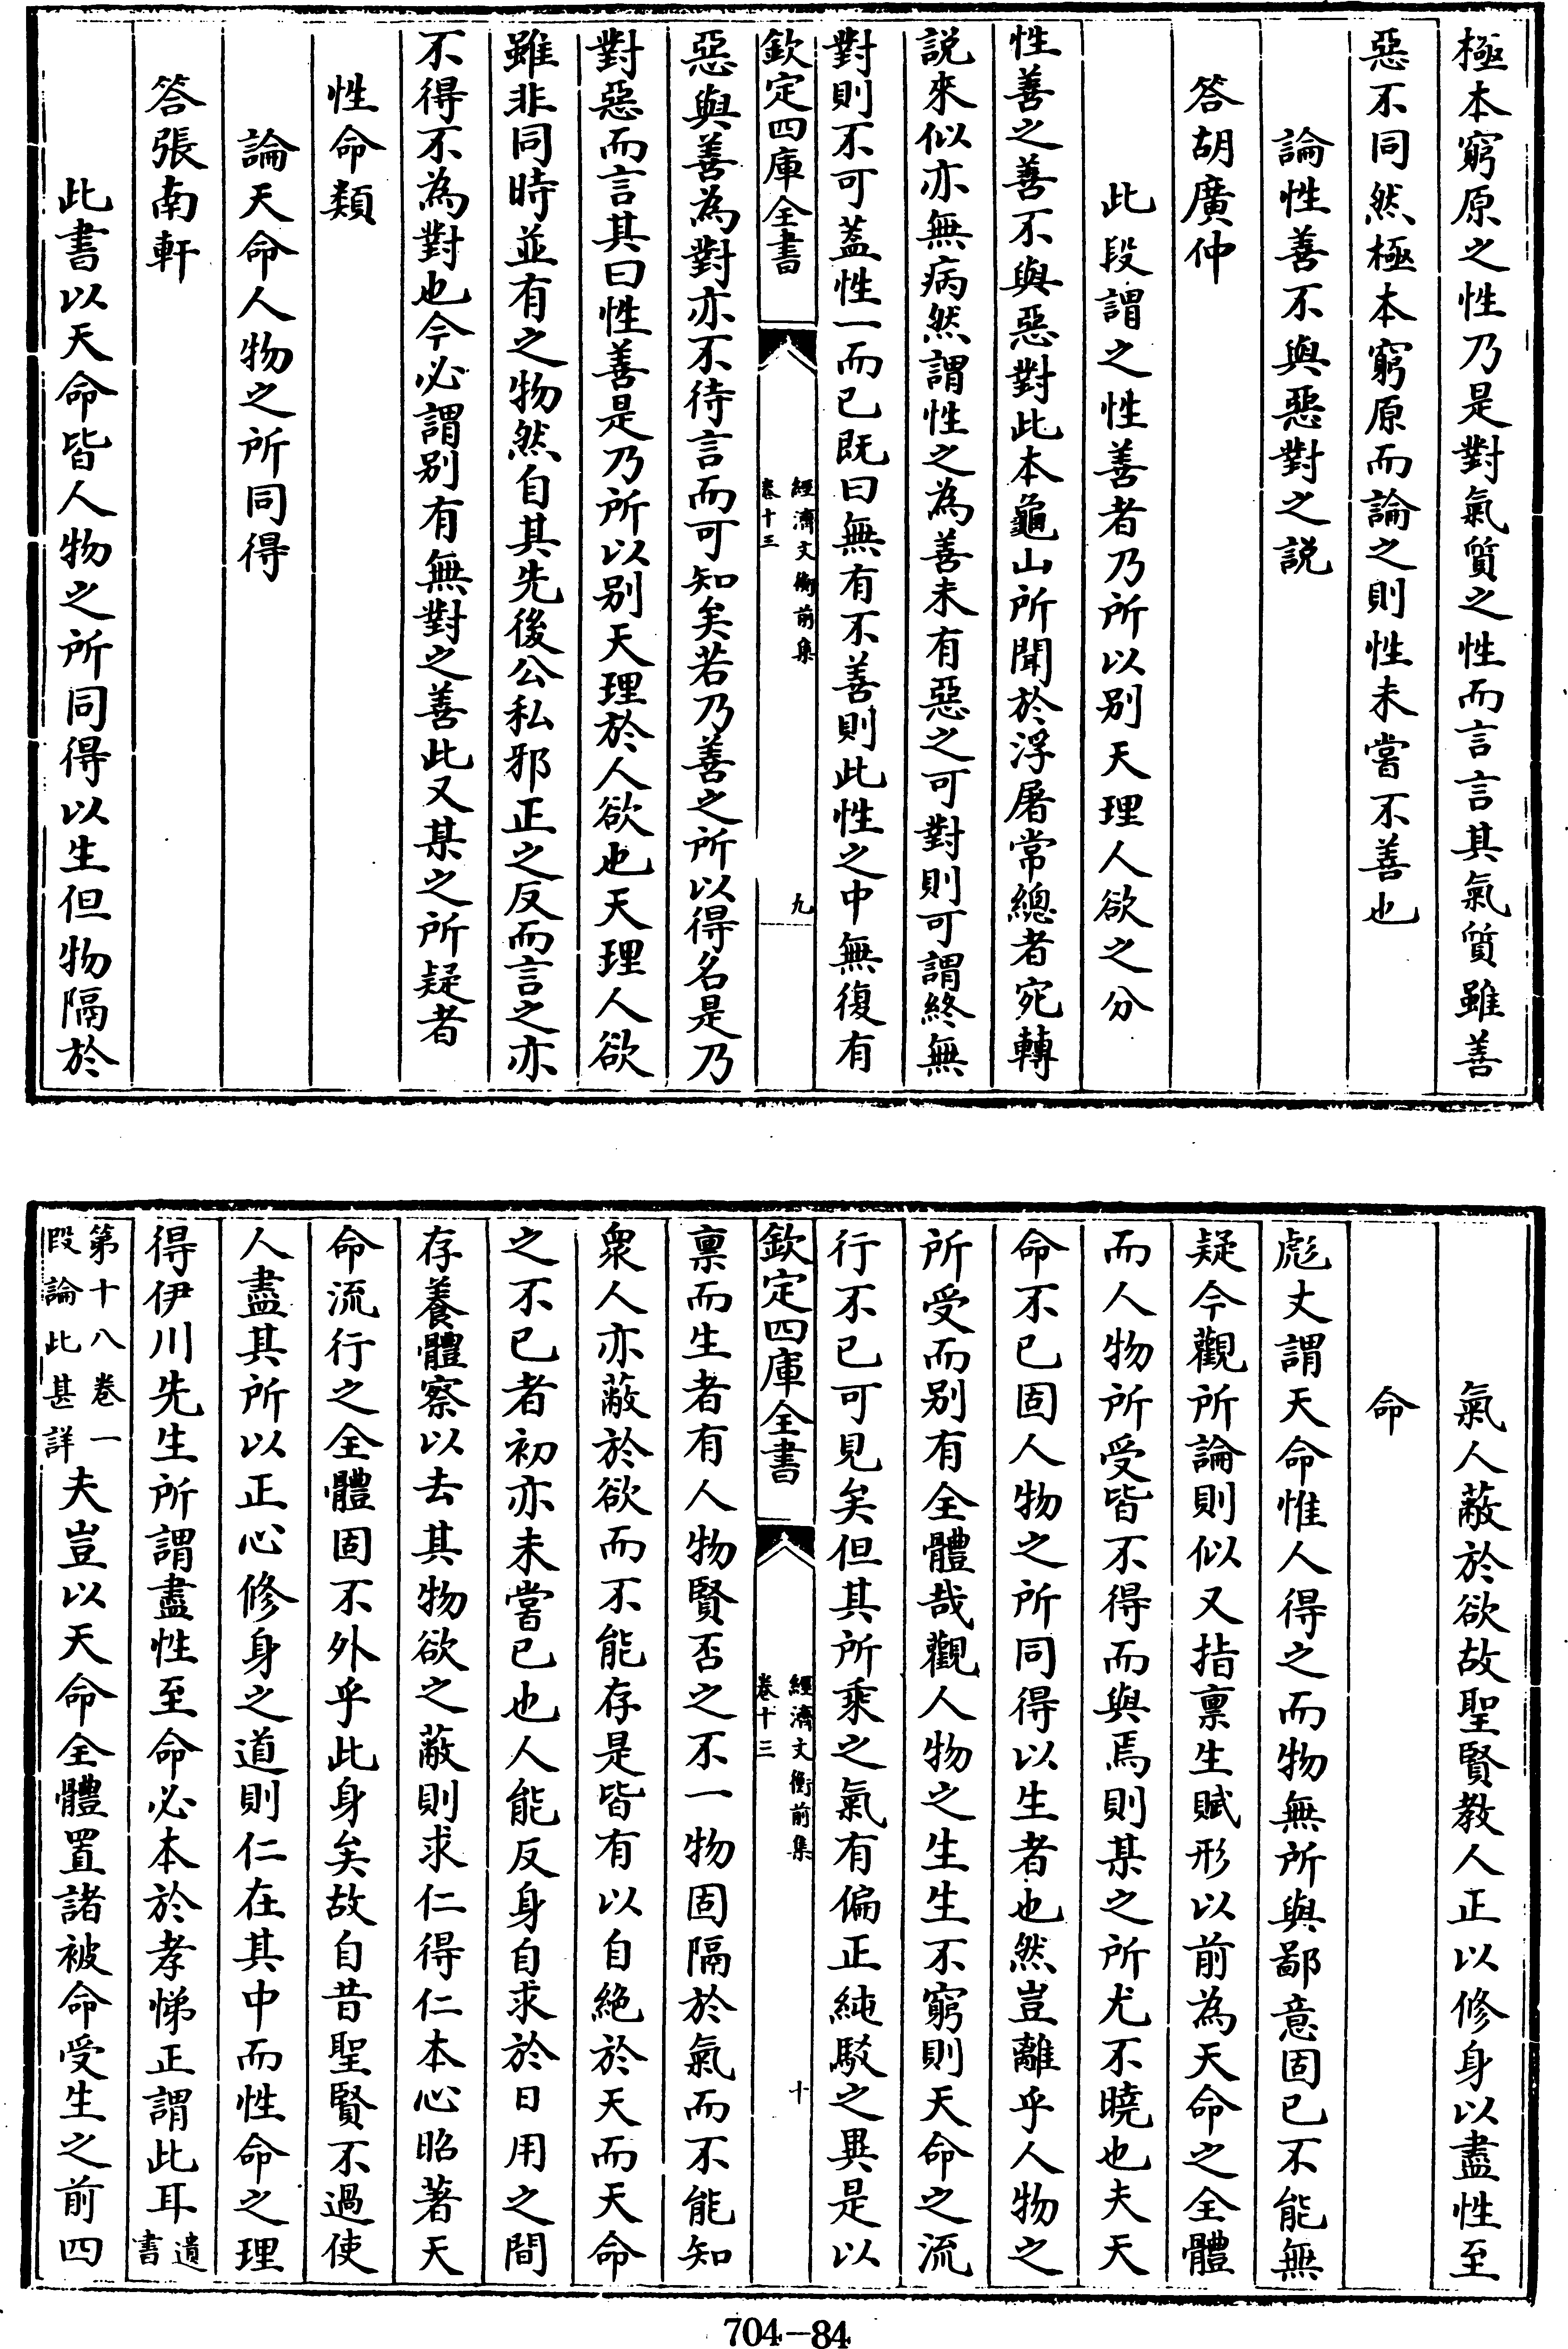 極本窮原之性乃是對氣質之性而言言其氣質雖善
惡不同然極本窮原而論之則性未嘗不善也
論性善不與惡對之説
答胡廣仲
此段謂之性善者乃所以别天理人欲之分
性善之善不與惡對此本龜山所聞於浮屠常總者宛轉
説來似亦無病然謂性之為善未有惡之可對則可謂終無
對則不可蓋性一而已既曰無有不善則此性之中無復有
欽定四庫全書
經濟文衡前集
卷十三
九
惡與善為對亦不待言而可知矣若乃善之所以得名是乃
對惡而言其曰性善是乃所以别天理於人欲也天理人欲
雖非同時並有之物然自其先後公私邪正之反而言之亦
不得不為對也今必謂别有無對之善此又某之所疑者
性命類
論天命人物之所同得
答張南軒
此書以天命皆人物之所同得以生但物隔於
氣人蔽於欲故聖賢教人正以修身以盡性至
命
彪丈謂天命惟人得之而物無所與鄙意固已不能無
疑今觀所論則似又指稟生賦形以前為天命之全體
而人物所受皆不得而與焉則某之所尤不曉也夫天
命不已固人物之所同得以生者也然豈離乎人物之
所受而别有全體哉觀人物之生生不窮則天命之流
行不已可見矣但其所乘之氣有偏正純駁之異是以
欽定四庫全書
經濟文衡前集
卷十三
十
稟而生者有人物賢否之不一物固隔於氣而不能知
衆人亦蔽於欲而不能存是皆有以自絶於天而天命
之不已者初亦未嘗已也人能反身自求於日用之間
存養體察以去其物欲之蔽則求仁得仁本心昭著天
命流行之全體固不外乎此身矣故自昔聖賢不過使
人盡其所以正心修身之道則仁在其中而性命之理
得伊川先生所謂盡性至命必本於孝悌正謂此耳遺書
第十八卷一段論此甚詳夫豈以天命全體置諸被命受生之前四
704-84